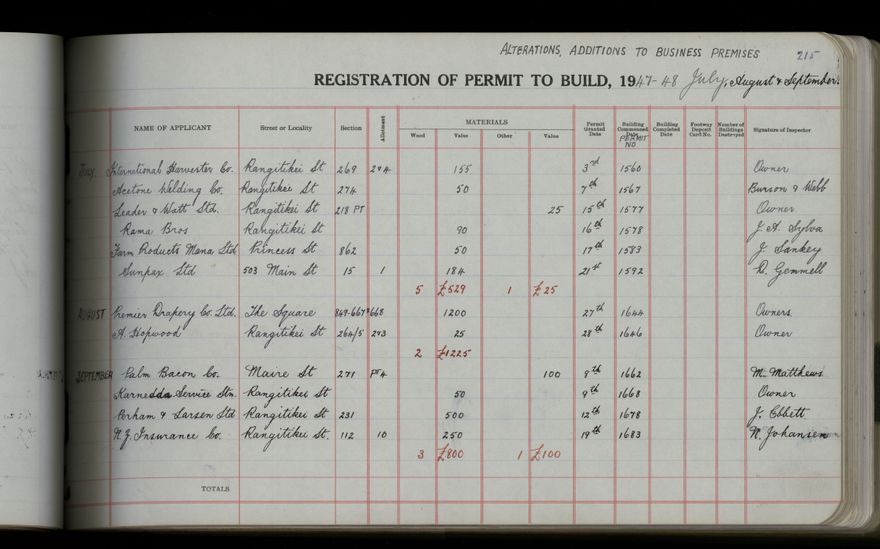 ALTERATIONS, ADDITIONS TO BUSINESS PREMISES 215
REGISTRATION OF PERMIT TO BUILD, 1947-48 July, August & September.
NAME OF APPLICANT Street or Locality Section Allotment MATERIALS Wood Value Other Value Permit Granted Date Building Commenced Date PERMIT NO Building Completed Date Footway Deposit Card No. Number of Buildings Destroyed Signature of Inspector
JULY International Harvester Co. Rangitikei St 269 2 & 4 155 3rd 1560 Owner
Acetone Welding Co. Rangitikei St 274 50 7th 1567 Burson & Webb
Leader & Watt Ltd. Rangitikei St 218 PT 25 15th 1577 Owner
Rama Bros Rangitikei St 90 16th 1578 J. A. Sylva
Farm Products Mana Ltd Princess St 862 50 17th 1583 J. Sankey
Sunpax Ltd 503 Main St 15 1 184 21st 1592 D. Gemmell
5 £529 1 £25
AUGUST Premier Drapery Co. Ltd. The Square 849-667 & 668 1200 27th 1644 Owners.
A. Hopwood Rangitikei St 264/5 2 & 3 25 28th 1646 Owner
2 £1225
SEPTEMBER Palm Bacon Co. Maire St 271 PT 4 100 8th 1662 M. Matthews
Service Stn. Rangitikei St 50 9th 1668 Owner
Perham & Larsen Ltd Rangitikei St 231 500 12th 1678 J. Ebbett
N.Z. Insurance Co. Rangitikei St. 112 10 250 19th 1683 N. Johansen
3 £800 1 £100
TOTALS